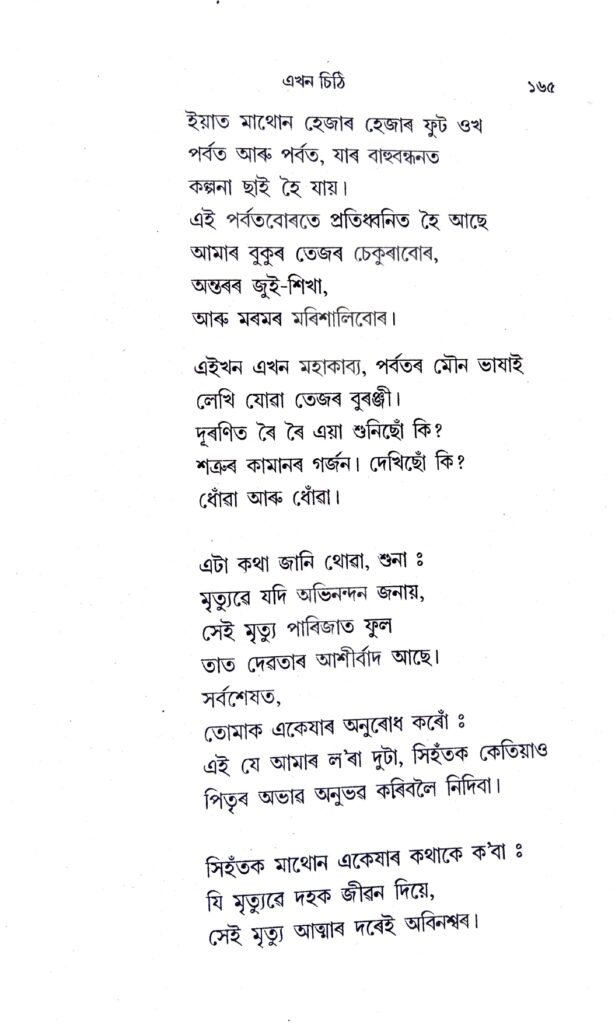 এখন চিঠি ১৬৫
ইয়াত মাথোন হেজাৰ হেজাৰ ফুট ওখ
পৰ্বত আৰু পৰ্বত, যাৰ বাহুবন্ধনত
কল্পনা ছাই হৈ যায়।
এই পৰ্বতবোৰতে প্ৰতিধ্বনিত হৈ আছে
আমাৰ বুকুৰ তেজৰ চেকুৰাবোৰ,
অন্তৰৰ জুই-শিখা,
আৰু মৰমৰ মৰিশালিবোৰ।
এইখন এখন মহাকাব্য, পৰ্বতৰ মৌন ভাষাই
লেখি যোৱা তেজৰ বুৰঞ্জী।
দূৰণিত ৰৈ ৰৈ এয়া শুনিছোঁ কি?
শত্ৰুৰ কামানৰ গৰ্জন। দেখিছোঁ কি?
ধোঁৱা আৰু ধোঁৱা।
এটা কথা জানি থোৱা, শুনা ঃ
মৃত্যুৱে যদি অভিনন্দন জনায়,
সেই মৃত্যু পাৰিজাত ফুল
তাত দেৱতাৰ আশীৰ্বাদ আছে।
সৰ্বশেষত,
তোমাক একেষাৰ অনুৰোধ কৰোঁ ঃ
এই যে আমাৰ ল'ৰা দুটা, সিহঁতক কেতিয়াও
পিতৃৰ অভাৱ অনুভৱ কৰিবলৈ নিদিবা।
সিহঁতক মাথোন একেষাৰ কথাকে ক'বা ঃ
যি মৃত্যুৱে দহক জীৱন দিয়ে,
সেই মৃত্যু আত্মাৰ দৰেই অবিনশ্বৰ।